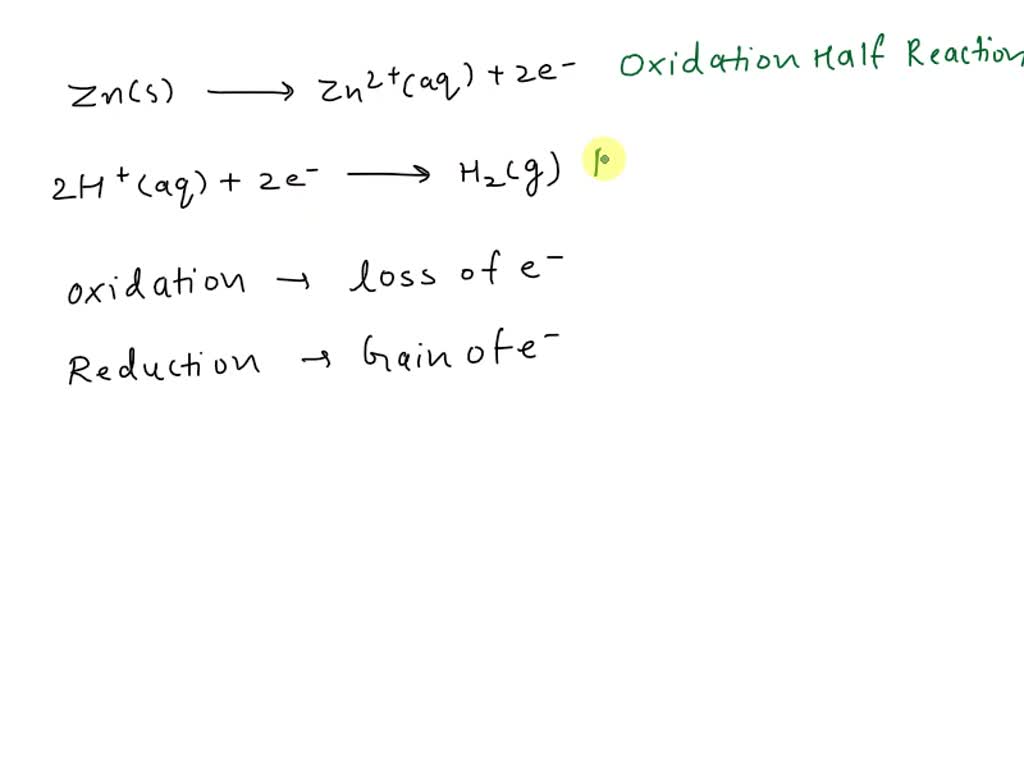 Zn(s) ⟶ Zn²⁺(aq) + 2e⁻ Oxidation Half Reaction
2H⁺(aq) + 2e⁻ ⟶ H₂(g)
oxidation → loss of e⁻
Reduction → Gain of e⁻